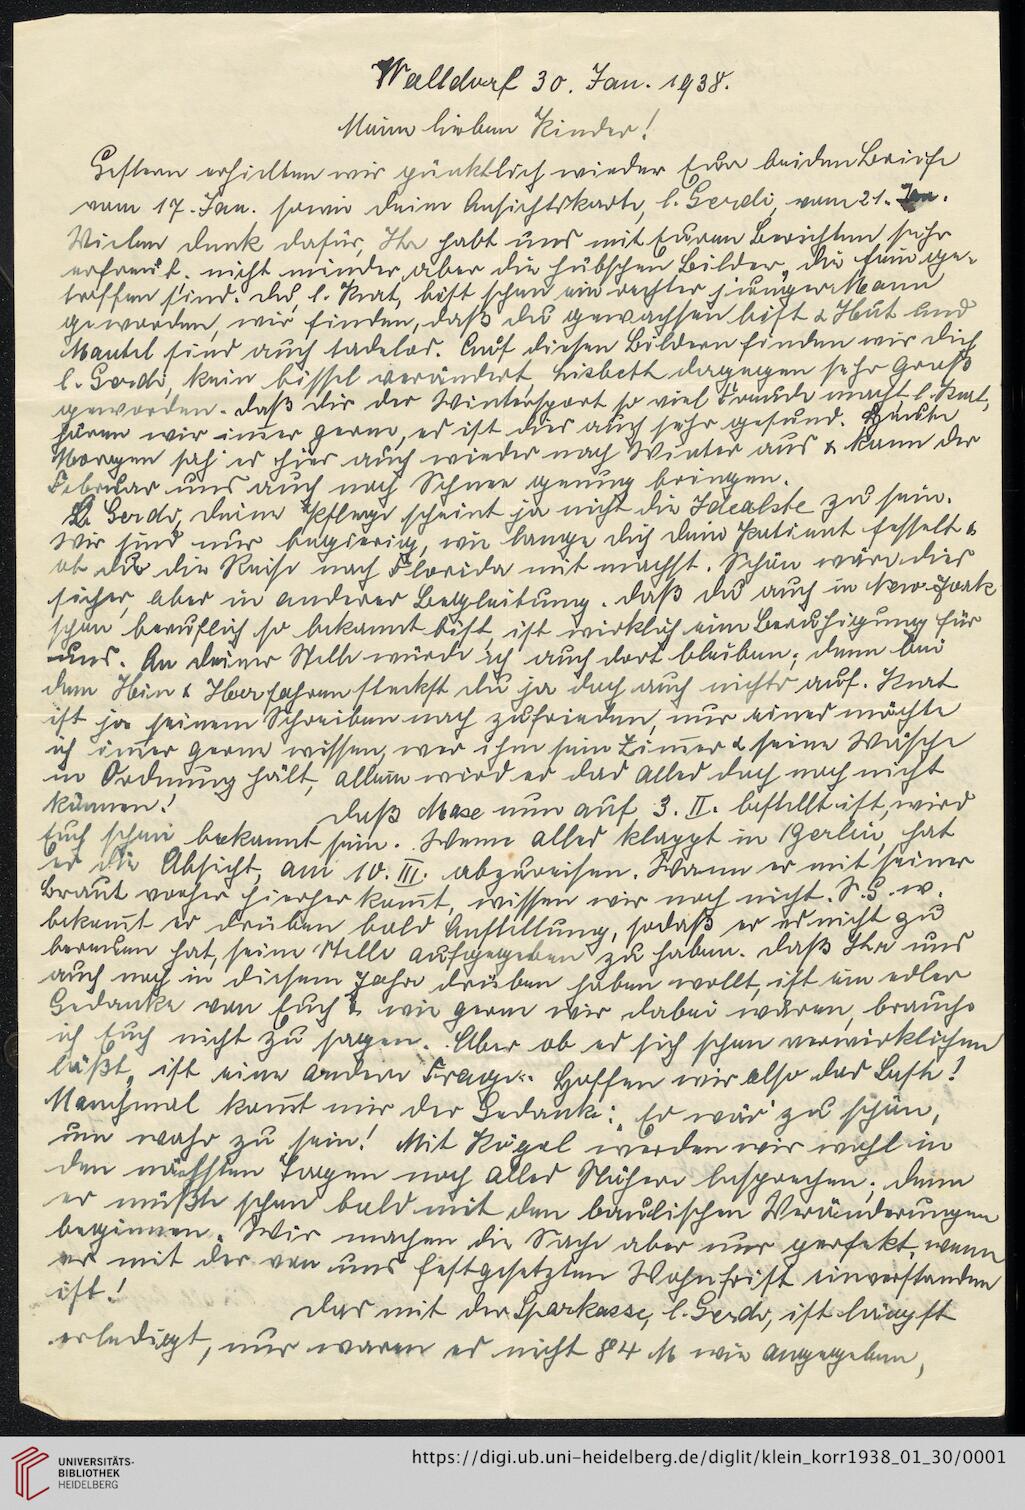 Walldorf 30. Jan. 1938.
Meine lieben Kinder!
Gestern erhielten wir pünktlich wieder Eure beiden Briefe
vom 17. Jan. sowie deine Ansichtskarte, l. Gerdi, vom 21. Jan.
Vielen Dank dafür, Ihr habt uns mit Euren Berichten sehr
erfreut. nicht minder aber die hübschen Bilder, die fein ge-
troffen sind. Du, l. Kurt, bist schon ein rechter junger Mann
geworden, wir finden, daß du gewachsen bist & Hut und
Mantel sind auch tadellos. Auf diesen Bildern finden wir dich
l. Gerdi, kein bissel verändert, Lisbeth dagegen sehr groß
geworden. daß dir der Wintersport so viel Freude macht l. Kurt,
hören wir immer gerne, es ist dies auch sehr gesund. Heute
Morgen sah es hier auch wieder nach Winter aus & kann der
Februar uns auch noch Schnee genug bringen.
L. Gerdi, deine Pflege scheint ja nicht die Idealste zu sein.
Wir sind nur begierig, wie lange dich dein Patient fesselt &
ob du die Reise nach Florida mit machst. Schön wäre dies
sicher, aber in anderer Begleitung. daß du auch in New-York
schon beruflich so bekannt bist, ist wirklich eine Beruhigung für
uns. An deiner Stelle würde ich auch dort bleiben; denn bei
dem Hin & Herfahren steckst du ja doch auch nichts auf. Kurt
ist ja seinem Schreiben nach zufrieden, nur eines möchte
ich immer gerne wissen, wer ihm sein Zimmer & seine Wäsche
in Ordnung hält, allein wird er das alles doch noch nicht
können! daß Maxe nun auf 3. II. bestellt ist, wird
Euch schon bekannt sein. Wenn alles klappt in Berlin, hat
er die Absicht, am 10. III. abzureisen. Wann er mit seiner
Braut vorher hierher kommt, wissen wir noch nicht. S. G. w.
bekommt er drüben bald Anstellung, sodaß er es nicht zu
bereuen hat, seine Stelle aufgegeben zu haben. daß Ihr uns
auch noch in diesem Jahre drüben haben wollt, ist ein edler
Gedanke von Euch & wie gerne wir dabei wären, brauche
ich Euch nicht zu sagen. Aber ob es sich schon verwirklichen
läßt, ist eine andere Frage. Hoffen wir also das Beste!
Manchmal kommt mir der Gedanke: Es wär' zu schön,
um wahr zu sein! Mit Kögel werden wir wohl in
den nächsten Tagen noch alles Nähere besprechen; denn
er müßte schon bald mit den baulichen Veränderungen
beginnen. Wir machen die Sache aber nur perfekt, wenn
er mit der von uns festgesetzten Wohnfrist einverstanden
ist! Das mit der Sparkasse, l. Gerdi, ist längst
erledigt, nur waren es nicht 84 M wie angegeben,
UNIVERSITÄTS-
BIBLIOTHEK
HEIDELBERG
https://digi.ub.uni-heidelberg.de/diglit/klein_korr1938_01_30/0001